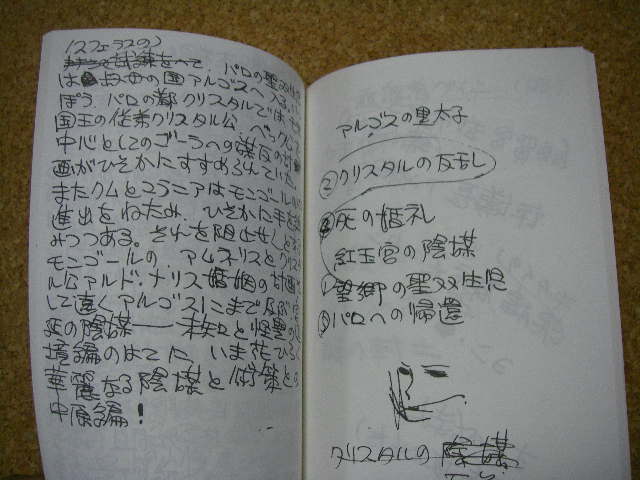 (スフェラスの)
は 国アルゴスへ入る
ぽう、パロの都クリスタルでは
国王の従弟クリスタル公ベック
中心としてのゴーラへの謀反の計
画がひそかにすすめられていた。
またクムとユラニアはモンゴールの
進出をねたみ、ひそかに手を
みつつある。それを阻止せんと
モニゴールの、アムネリスとクリス
ル公アルド・ナリス婚姻の計画
して遠くアルゴスにまで及ぶ
死の陰謀――未知と怪異の
境編のはてに、いま花ひらく
華麗なる陰謀と
中原編!
アルゴスの黒太子
②クリスタルの反乱
死の婚礼
紅玉宮の陰謀
望郷の聖双生児
パロへの帰還
クリスタルの陰謀